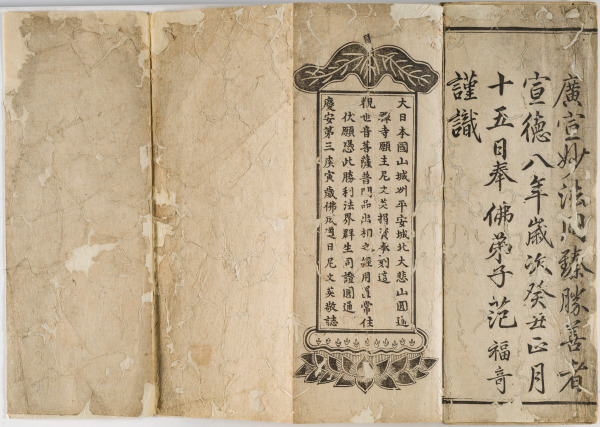 廣宣妙法同臻勝善者
宣德八年歲次癸丑正月
十五日奉佛弟子范福奇
謹識
大日本國山城州平安城北大悲山圓通
禪寺願主尼文英捐資奉刻這
觀世音菩薩普門品出相之經用置常住
伏願憑此勝利法界群生同證圓通
慶安第三庚寅歲佛成道日尼文英敬誌